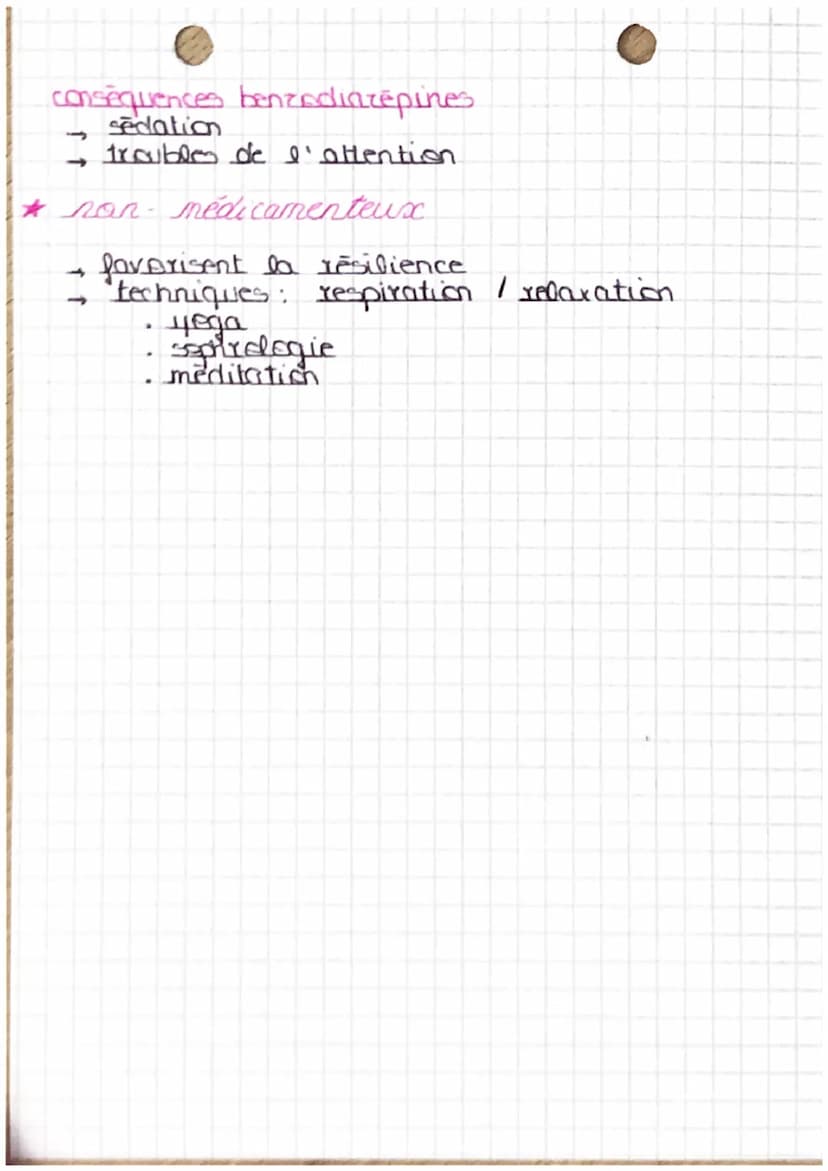 conséquences benzodiazépines
→ sédation
→ troubles de l'attention
★ non-médicamenteux
→ favorisent la résilience
→ techniques : respiration / relaxation
. yoga
. sophrologie
. méditation